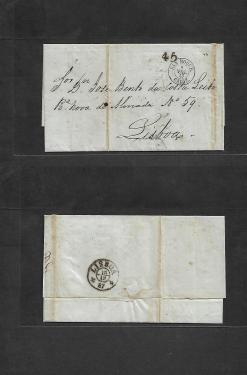 45
D. Jose Bento da Costa Leite
Rª nova do Almada Nº 59.
Lisboa
LISBOA
67